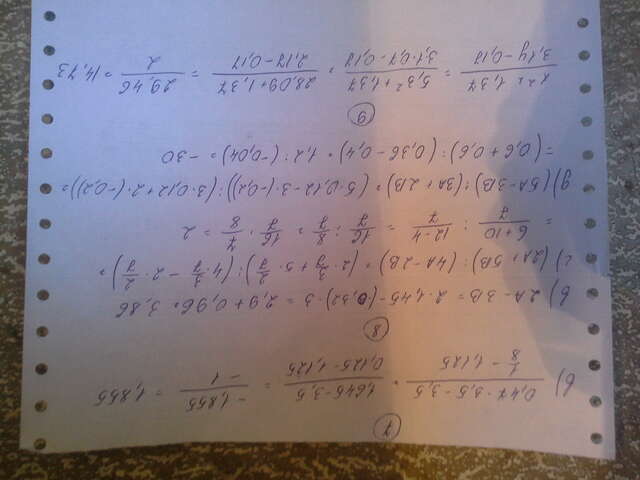 7
в) (0,47 · 3,5 - 3,5)/(1/8 - 1,125) = (1,645 - 3,5)/(0,125 - 1,125) = (-1,855)/(-1) = 1,855
8
в) 2A - 3B = 2 · 1,45 - (0,32) · 3 = 2,9 + 0,96 = 3,86
г) (2A + 5B) : (4A - 2B) = (2 · 3/7 + 5 · 2/7) : (4 · 3/7 - 2 · 2/7) =
= (6 + 10)/7 : (12 - 4)/7 = 16/7 : 8/7 = 16/7 · 7/8 = 2
д) (5A - 3B) : (3A + 2B) = (5 · 0,12 - 3 · (-0,2)) : (3 · 0,12 + 2 · (-0,2)) =
= (0,6 + 0,6) : (0,36 - 0,4) = 1,2 : (-0,04) = -30
9
(x² + 1,37)/(3,1y - 0,17) = (5,3² + 1,37)/(3,1 · 0,7 - 0,17) = (28,09 + 1,37)/(2,17 - 0,17) = 29,46/2 = 14,73